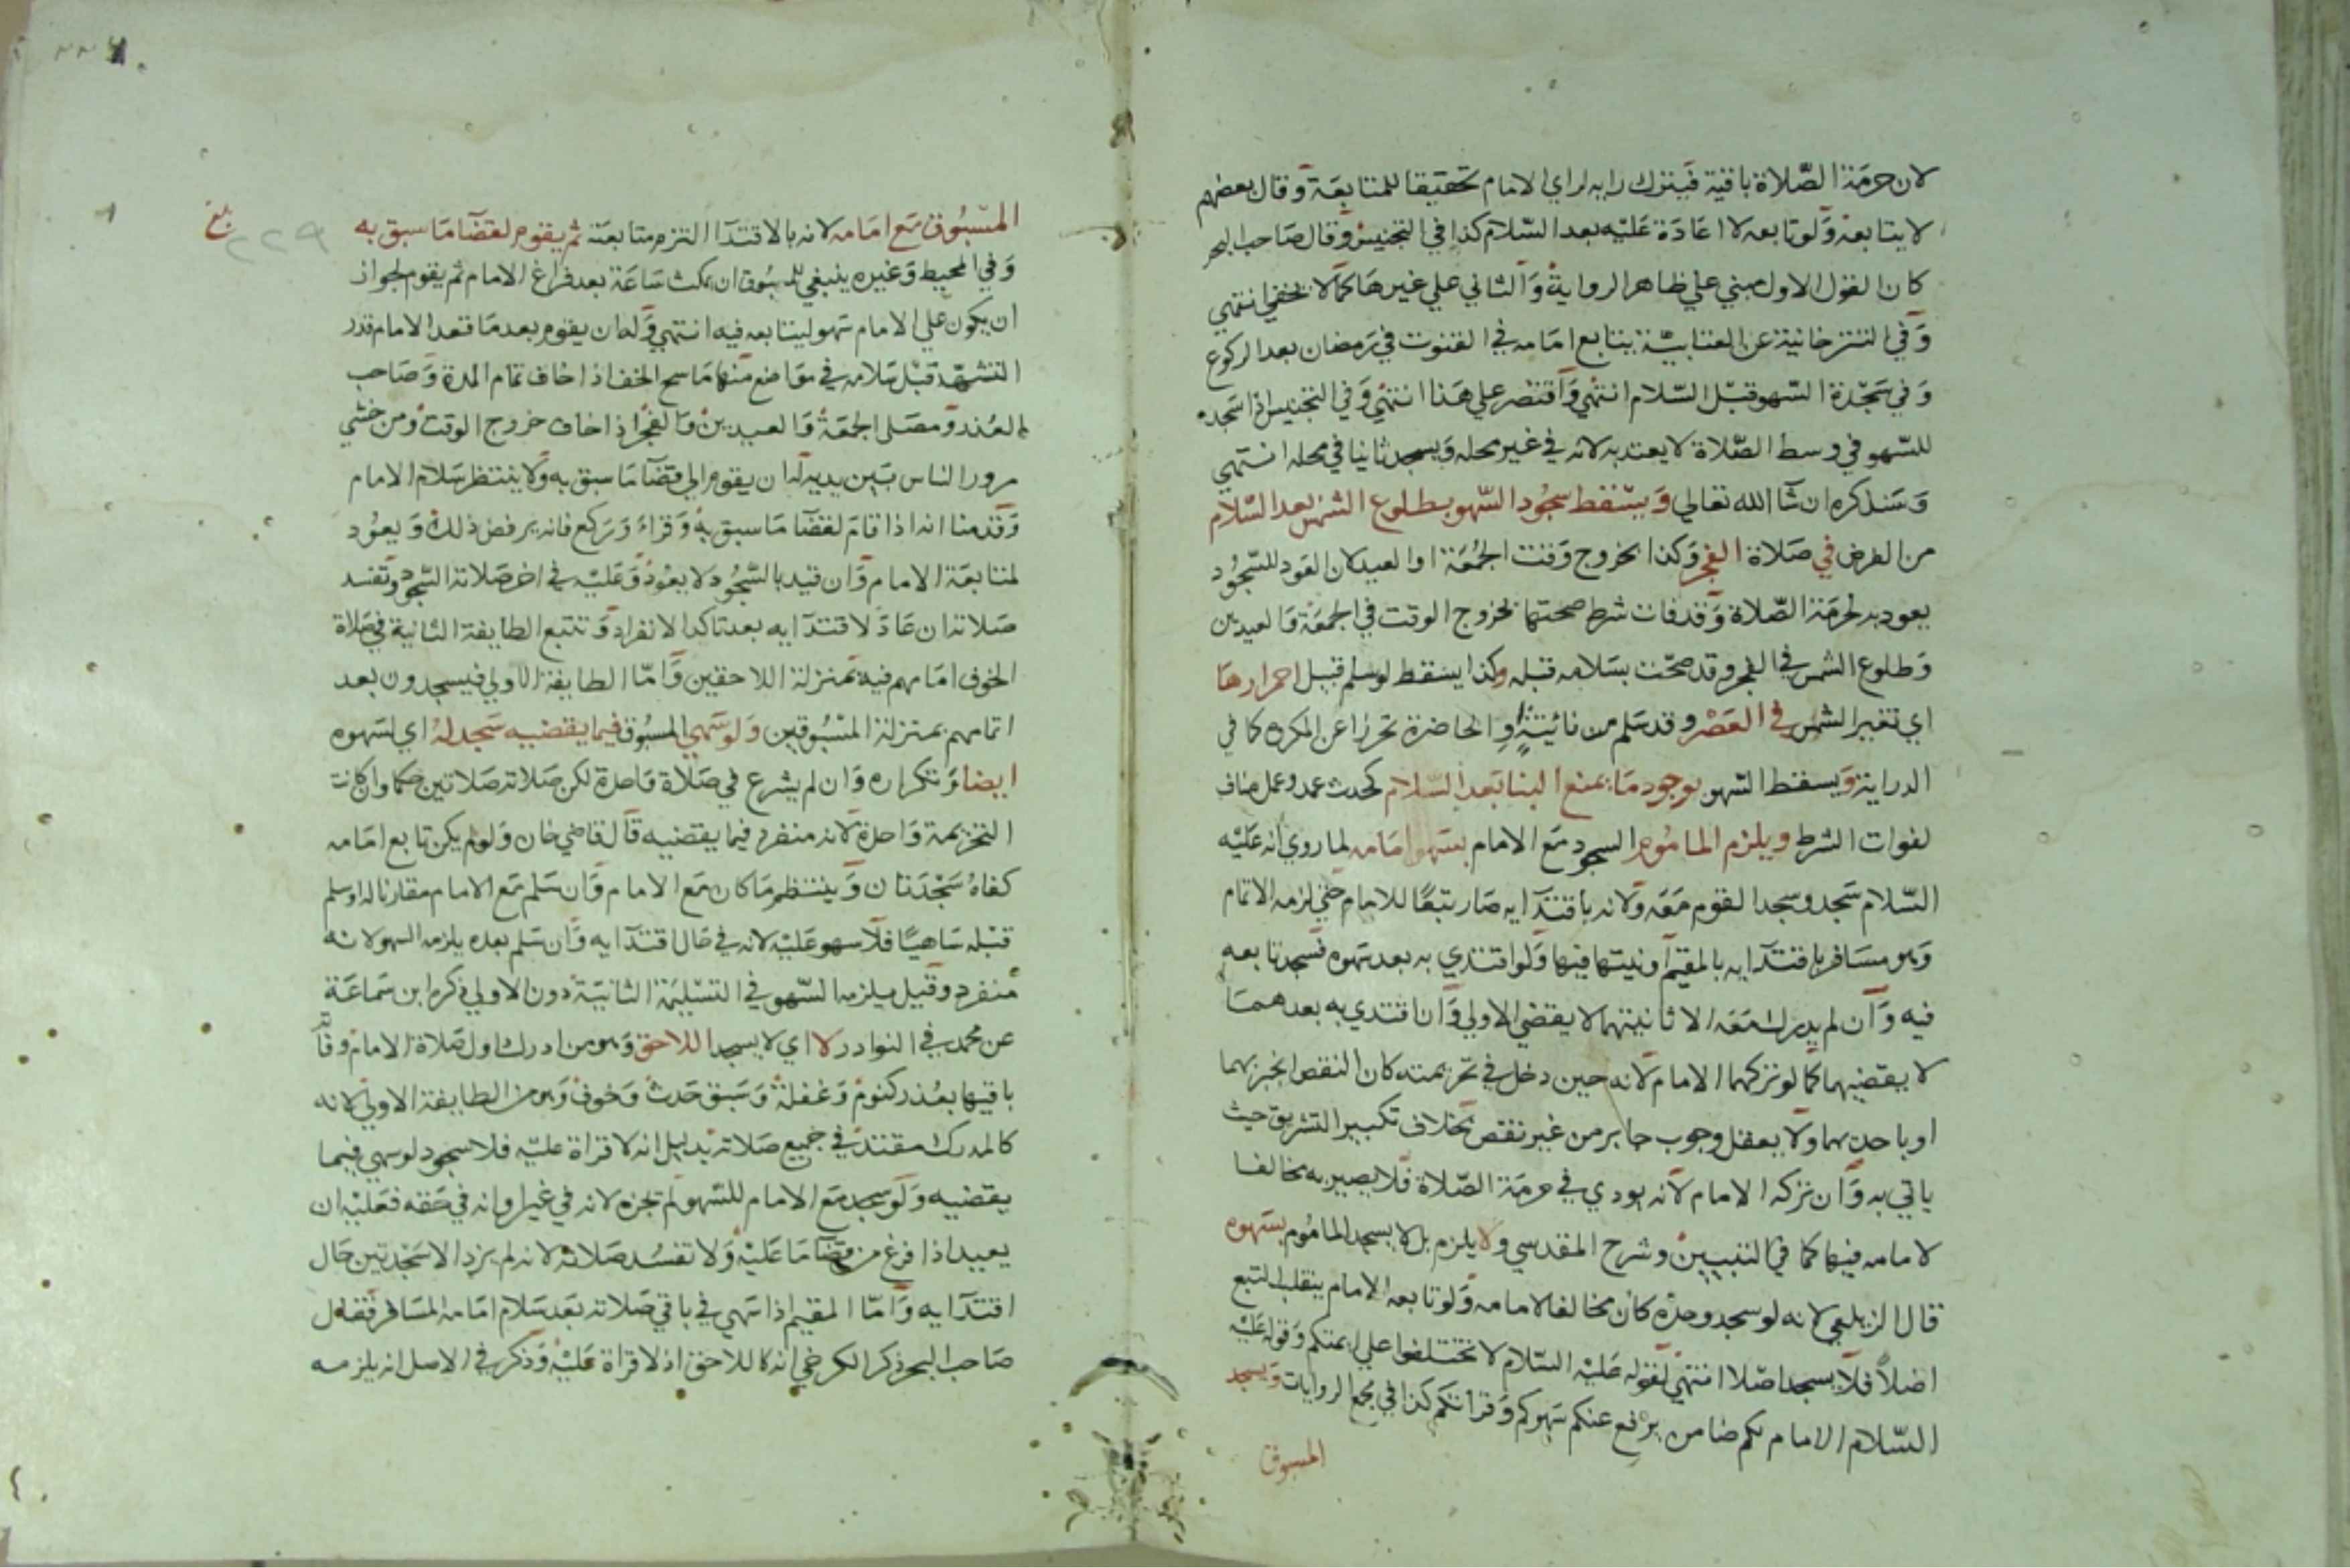 لان حرمة الصلاة باقية فيترك رايه لراي الامام تحقيقا للمتابعة وقال بعضهم
لا يتابعه ولو تابعه لا اعادة عليه بعد السلام كذا في التجنيس وقال صاحب البحر
كان القول الاول مبني علي ظاهر الرواية والثاني علي غيرها كما لا يخفي انتهي
وفي التترخانية عن العتابية يتابع امامه في القنوت في رمضان بعد الركوع
وفي سجدة السهو قبل السلام انتهي واقتصر علي هذا انتهي وفي التجنيس اذا سجد
للسهو في وسط الصلاة لا يعتد به لانه في غير محله ويسجد ثانيا في محله انتهي
وسنذكره ان شآ الله تعالي ويسقط سجود السهو بطلوع الشمس بعد السلام
من الفرض في صلاة الفجر وكذا بخروج وقت الجمعة او العيد لان العود للسجود
يعود به لحرمة الصلاة وقد فات شرط صحتها بخروج الوقت في الجمعة والعيدين
وطلوع الشمس في الفجر وقد صحت بسلامه قبله وكذا يسقط لو سلم قبيل احمرارها
اي تغير الشمس في العصر وقد سلم من فائتة او الحاضرة تحرزا عن المكروه كما في
الدراية ويسقط السهو بوجود ما يمنع البنا بعد السلام كحدث عمد وعمل مناف
لفوات الشرط ويلزم الماموم السجود مع الامام بسهو امامه لما روي انه عليه
السلام سجد وسجد القوم معه ولانه باقتدآيه صار تبعا للامام حتي لزمه الاتمام
وهو مسافر باقتدآيه بالمقيم او نيتها فيها ولو اقتدي به بعد سهوه فسجد تابعه
فيه وان لم يدرك معه الا ثانيتهما لا يقضي الاولي وان اقتدي به بعدهما
لا يقضيهما كما لو تركهما الامام لانه حين دخل في تحريمته كان النقص انجبر بهما
او باحديهما ولا يعقل وجوب جابر من غير نقص بخلاف تكبير التشريق حيث
ياتي به وان تركه الامام لانه يودي في حرمة الصلاة فلا يصير به مخالفا
لامامه فيها كما في التبيين وشرح المقدسي ولا يلزم بل لا يسجد الماموم بسهوه
قال الزيلعي لانه لو سجد وحده كان مخالفا لامامه ولو تابعه الامام ينقلب التبع
اصلا فلا يسجد اصلا انتهي لقوله عليه السلام لا تختلفوا علي ايمتكم وقوله عليه
السلام الامام لكم ضامن يرفع عنكم سهوكم وقراتكم كذا في مجمع الروايات ويسجد
المسبوق
المسبوق مع امامه لانه بالاقتدآ التزم متابعته ثم يقوم لقضآ ما سبق به
بلغ
٢٢٩
وفي المحيط وغيره ينبغي للمسبوق ان يمكث ساعة بعد فراغ الامام ثم يقوم لجواز
ان يكون علي الامام سهو ليتابعه فيه انتهي وله ان يقوم بعد ما قعد الامام قدر
التشهد قبل سلامه في مواضع منها ماسح الخف اذا خاف تمام المدة وصاحب
العذر ومصلي الجمعة والعيدين والفجر اذا خاف خروج الوقت ومن خشي
مرور الناس بين يديه له ان يقوم الي قضآ ما سبق به ولا ينتظر سلام الامام
وقدمنا انه اذا قام لقضآ ما سبق به وقراء وركع فانه يرفض ذلك ويعود
لمتابعة الامام وان قيد بالسجود لا يعود وعليه في اخر صلاته السجود وتفسد
صلاته ان عاد لاقتدآيه بعد تاكد الانفراد وتتبع الطايفة الثانية في صلاة
الخوف امامهم فيه بمنزلة اللاحقين واما الطايفة الاولي فيسجدون بعد
اتمامهم بمنزلة المسبوقين ولو سهي المسبوق فيما يقضيه سجد له اي لسهوه
ايضا وتكراره وان لم يشرع في صلاة واحدة لكن صلاته صلاتين حكما وان كانت
التحريمة واحدة لانه منفرد فيما يقضيه قال قاضي خان ولو لم يكن تابع امامه
كفاه سجدتان وينتظم ما كان مع الامام وان سلم مع الامام مقارنا له او سلم
قبله ساهيا فلا سهو عليه لانه في حال اقتدآيه وان سلم بعده يلزمه السهو لانه
منفرد وقيل يلزمه السهو في التسليمة الثانية دون الاولي ذكره ابن سماعة
عن محمد في النوادر لا اي لا يسجد اللاحق وهو من ادرك اول صلاة الامام وفا
باقيها بعذر كنوم وغفلة وسبق حدث وخوف وهو من الطايفة الاولي لانه
كالمدرك مقتد في جميع صلاته بدليل انه لا قراة عليه فلا سجود لو سهي فيما
يقضيه ولو سجد مع الامام للسهو لم يجزه لانه في غير اوانه في حقه فعليه ان
يعيد اذا فرغ من قضآ ما عليه ولا تفسد صلاته لانه لم يزد الا سجدتين حال
اقتدآيه واما المقيم اذا سهي في باقي صلاته بعد سلام امامه المسافر فقال
صاحب البحر ذكر الكرخي انه كاللاحق اذ لا قراة عليه وذكر في الاصل انه يلزمه